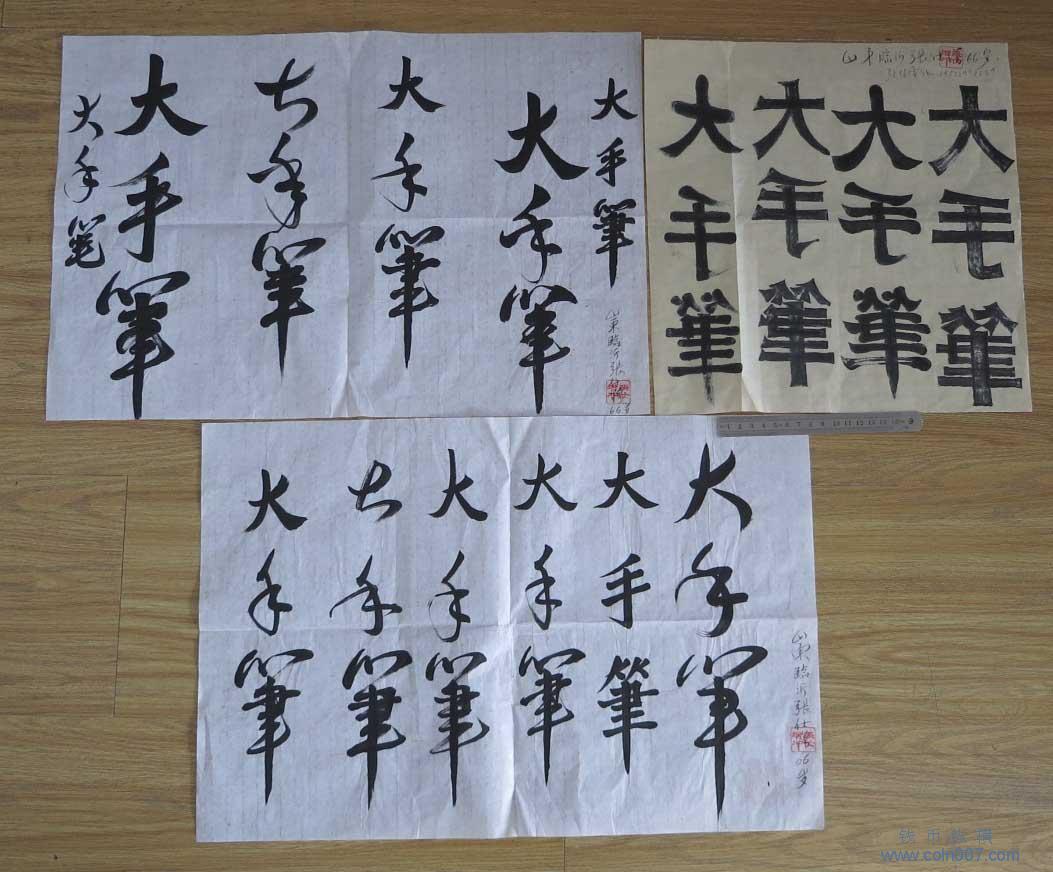 大手筆
大手筆
大手筆
大手筆
大手筆
大手笔
山東臨沂張
66岁
山东临沂張仕
66岁
大手筆
大手筆
大手筆
大手筆
大手筆
大手筆
大手筆
大手筆
大手筆
大手筆
山東臨沂張仕
66岁
钱币
www.coin007.com